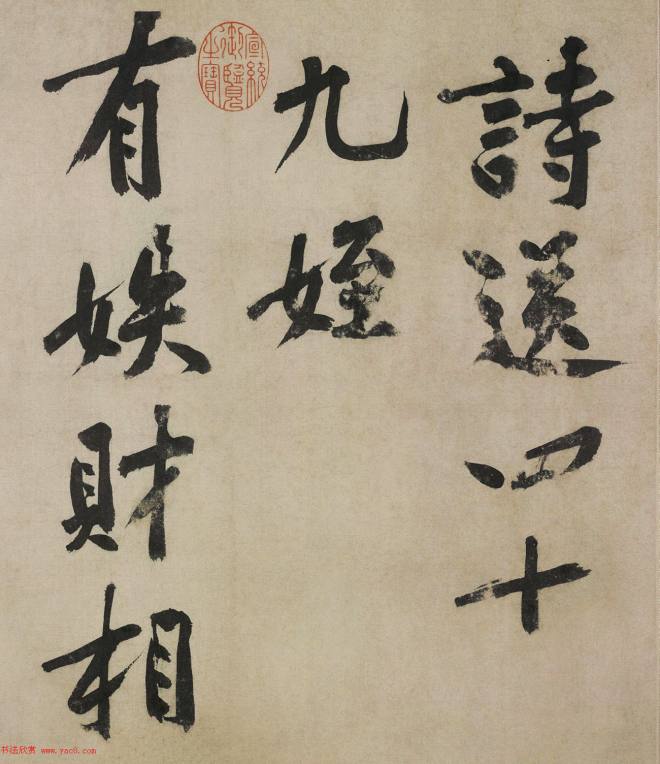 詩送四十
九姪
有妷財相
宣統御覽之寶
书法欣赏 www.yac8.com